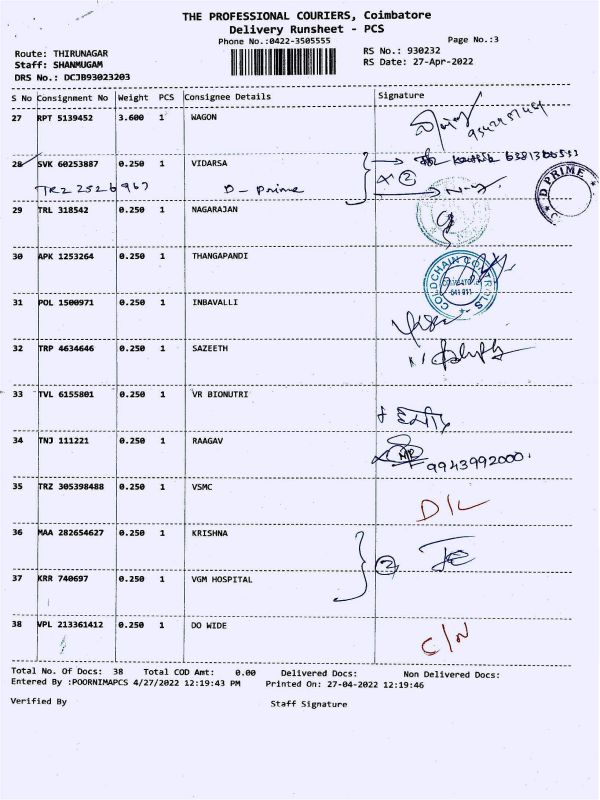 THE PROFESSIONAL COURIERS, Coimbatore
Delivery Runsheet - PCS
Phone No.:0422-3505555
Page No.:3
Route: THIRUNAGAR
RS No.: 930232
Staff: SHANMUGAM
RS Date: 27-Apr-2022
DRS No.: DCJB93023203
S No Consignment No Weight PCS Consignee Details Signature
27 RPT 5139452 3.600 1 WAGON
28 SVK 60253887 0.250 1 VIDARSA
TRZ 2526967 D - Prime
D PRIME
29 TRL 318542 0.250 1 NAGARAJAN
30 APK 1253264 0.250 1 THANGAPANDI
COLDCHAIN CONTROLS
31 POL 1500971 0.250 1 INBAVALLI
32 TRP 4634646 0.250 1 SAZEETH
33 TVL 6155801 0.250 1 VR BIONUTRI
34 TNJ 111221 0.250 1 RAAGAV
9943992000.
35 TRZ 305398488 0.250 1 VSMC
D/L
36 MAA 282654627 0.250 1 KRISHNA
2
37 KRR 740697 0.250 1 VGM HOSPITAL
38 VPL 213361412 0.250 1 DO WIDE
C/N
Total No. Of Docs: 38 Total COD Amt: 0.00 Delivered Docs: Non Delivered Docs:
Entered By :POORNIMAPCS 4/27/2022 12:19:43 PM Printed On: 27-04-2022 12:19:46
Verified By Staff Signature